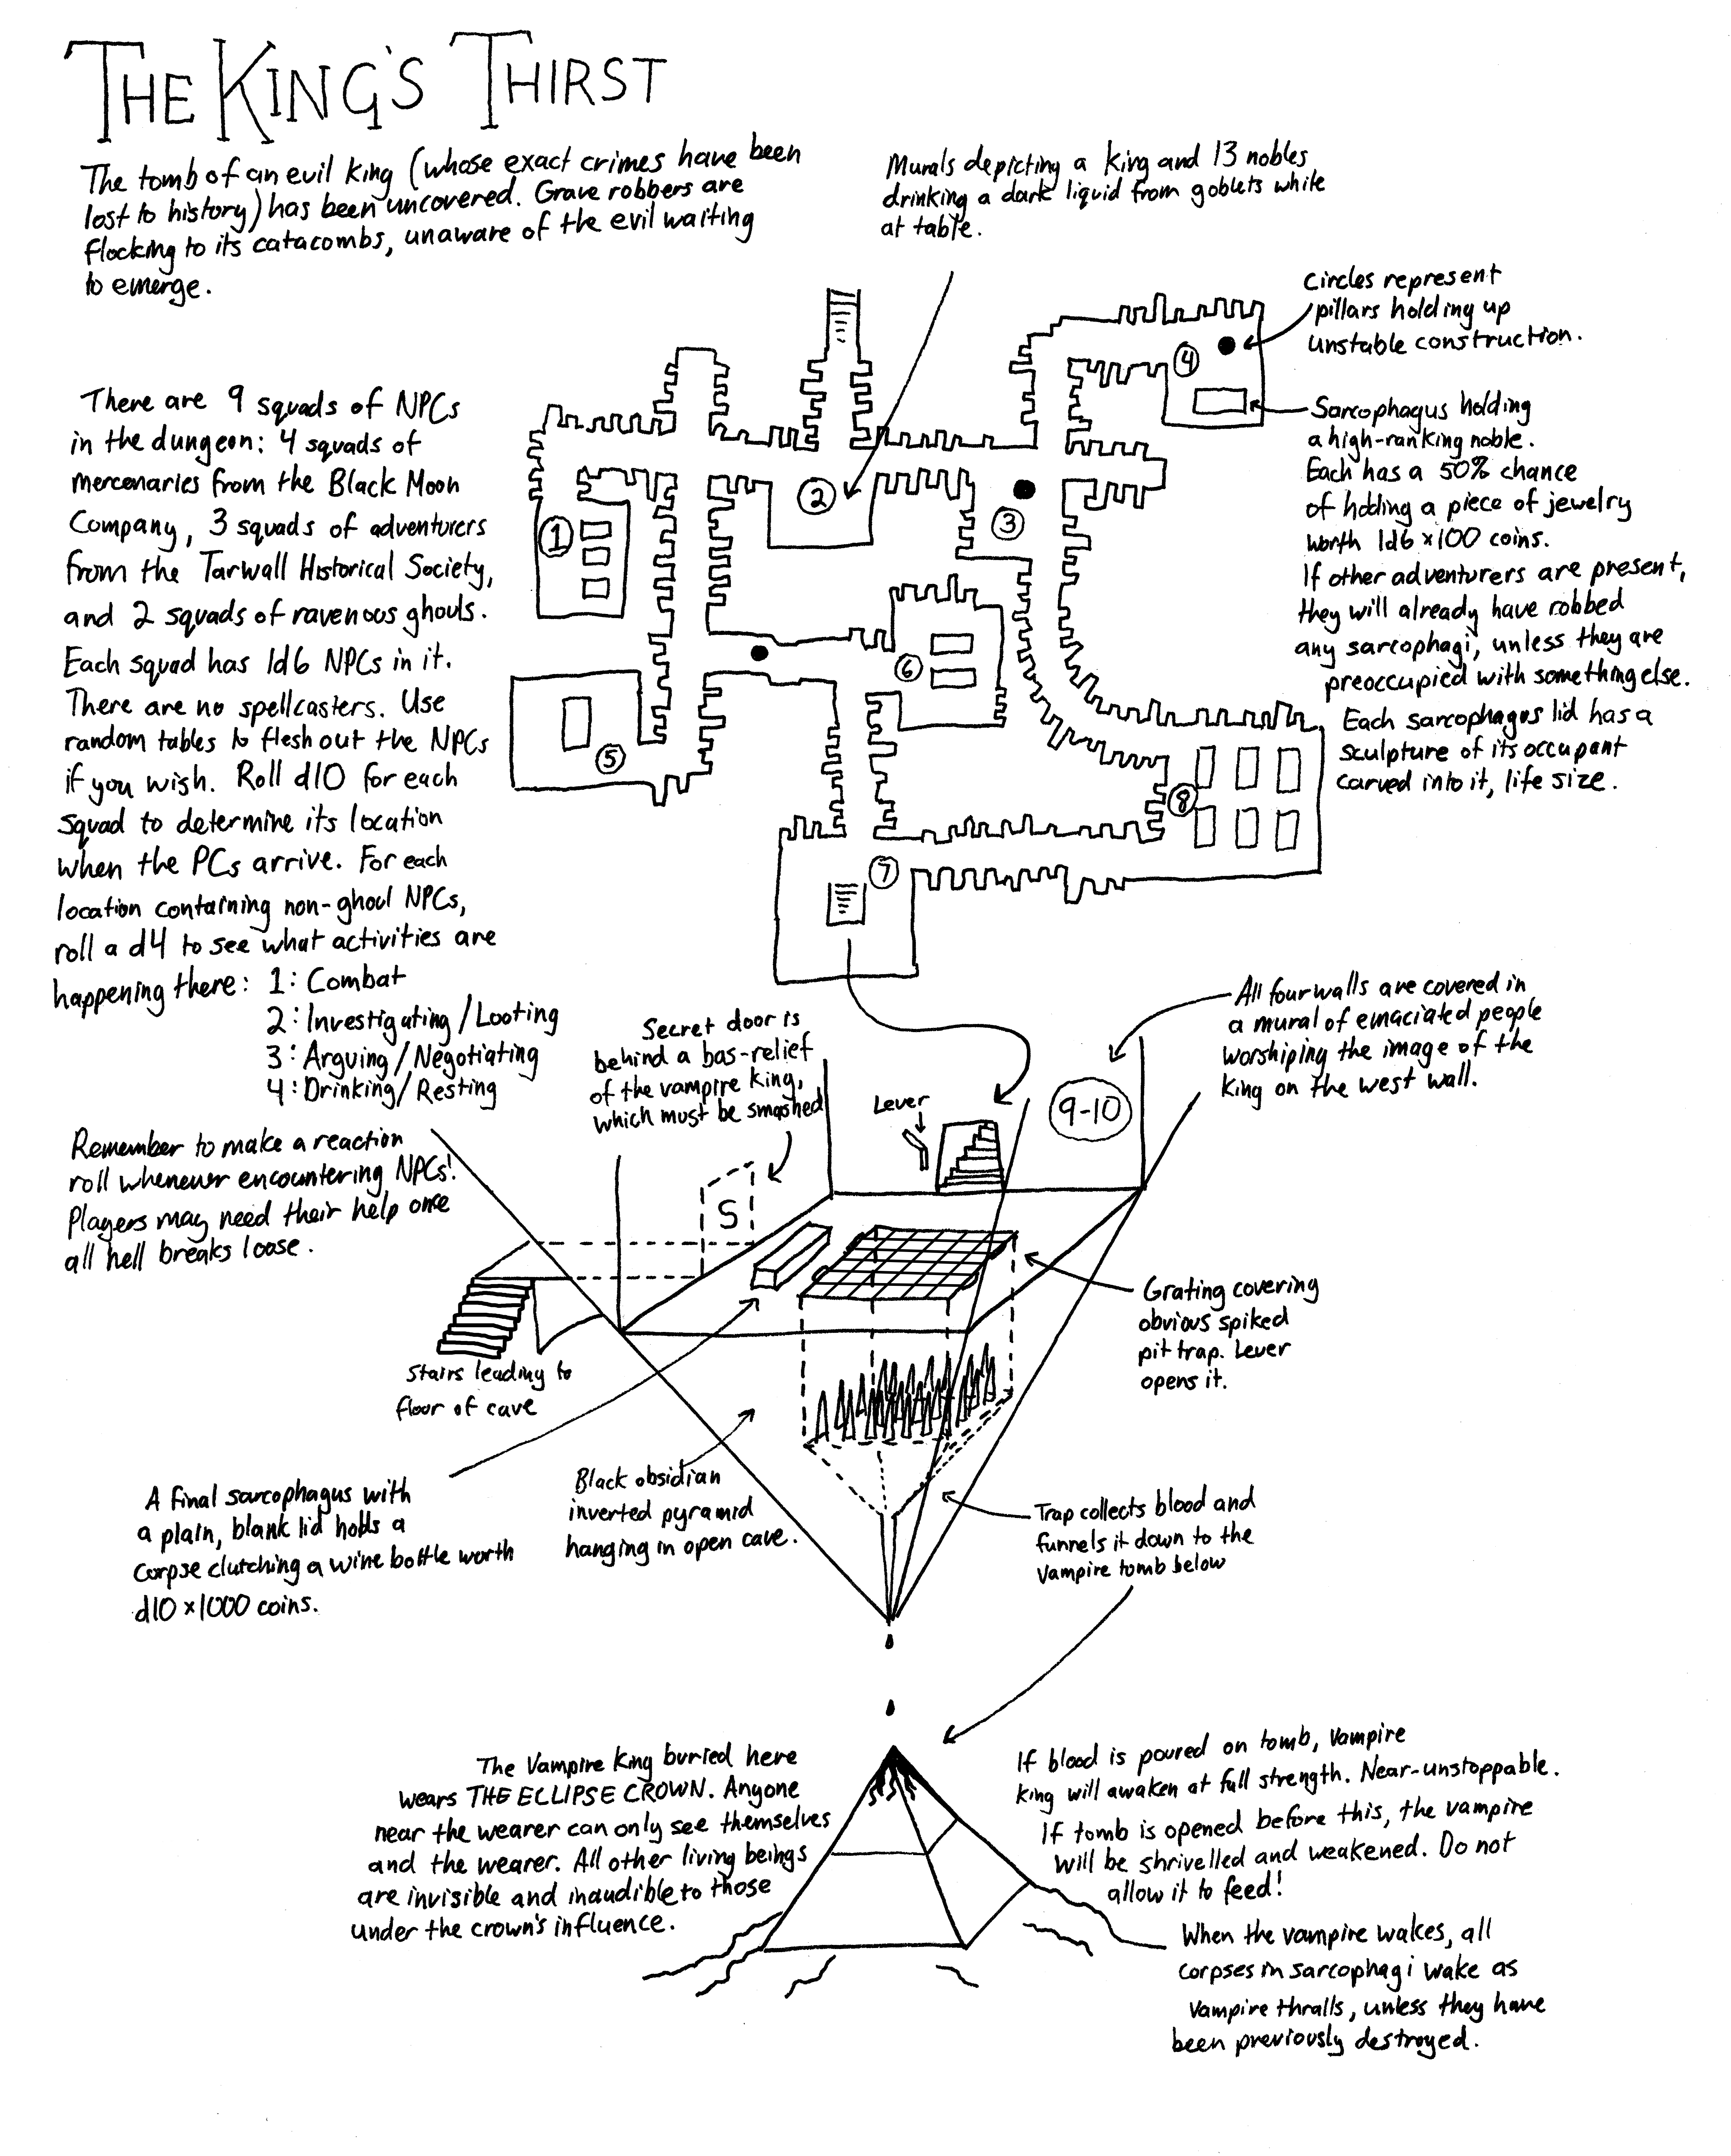 THE KING'S THIRST
The tomb of an evil king (whose exact crimes have been
lost to history) has been uncovered. Grave robbers are
flocking to its catacombs, unaware of the evil waiting
to emerge.
Murals depicting a king and 13 nobles
drinking a dark liquid from goblets while
at table.
Circles represent
pillars holding up
unstable construction.
There are 9 squads of NPCs
in the dungeon: 4 squads of
mercenaries from the Black Moon
Company, 3 squads of adventurers
from the Tarwall Historical Society,
and 2 squads of ravenous ghouls.
Each squad has 1d6 NPCs in it.
There are no spellcasters. Use
random tables to flesh out the NPCs
if you wish. Roll d10 for each
squad to determine its location
when the PCs arrive. For each
location containing non-ghoul NPCs,
roll a d4 to see what activities are
happening there: 1: Combat
2: Investigating/Looting
3: Arguing/Negotiating
4: Drinking/Resting
Remember to make a reaction
roll whenever encountering NPCs!
Players may need their help once
all hell breaks loose.
Sarcophagus holding
a high-ranking noble.
Each has a 50% chance
of holding a piece of jewelry
worth 1d6 x 100 coins.
If other adventurers are present,
they will already have robbed
any sarcophagi, unless they are
preoccupied with something else.
Each sarcophagus lid has a
sculpture of its occupant
carved into it, life size.
1
2
3
4
5
6
7
8
Secret door is
behind a bas-relief
of the vampire king,
which must be smashed
Lever
9-10
All four walls are covered in
a mural of emaciated people
worshiping the image of the
king on the west wall.
S
Stairs leading to
floor of cave
Grating covering
obvious spiked
pit trap. Lever
opens it.
A final sarcophagus with
a plain, blank lid holds a
corpse clutching a wine bottle worth
d10 x 1000 coins.
Black obsidian
inverted pyramid
hanging in open cave.
Trap collects blood and
funnels it down to the
vampire tomb below
The Vampire King buried here
wears THE ECLIPSE CROWN. Anyone
near the wearer can only see themselves
and the wearer. All other living beings
are invisible and inaudible to those
under the crown's influence.
If blood is poured on tomb, vampire
king will awaken at full strength. Near-unstoppable.
If tomb is opened before this, the vampire
will be shrivelled and weakened. Do not
allow it to feed!
When the vampire wakes, all
corpses in sarcophagi wake as
vampire thralls, unless they have
been previously destroyed.